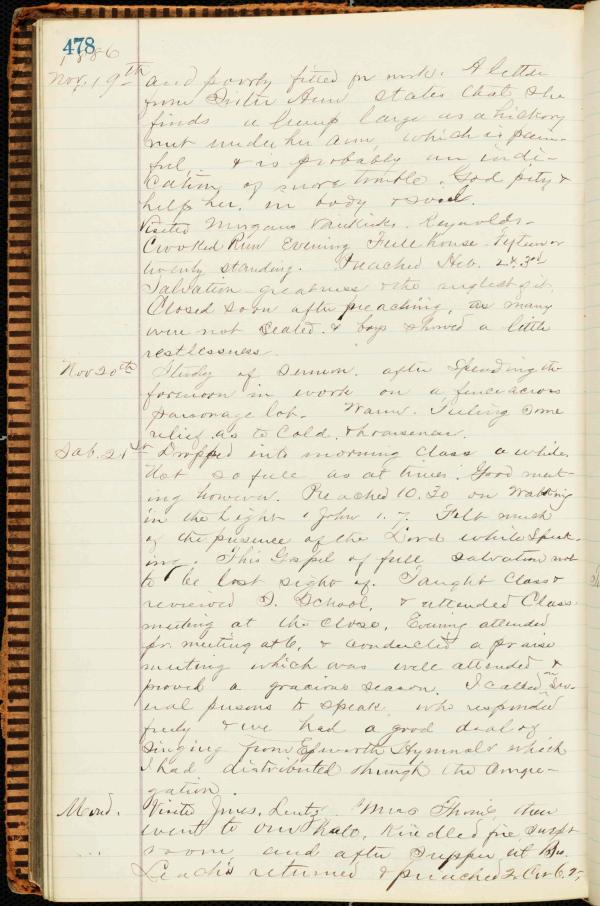 478
1886
Nov. 19th and poorly fitted for work. A letter
from Sister Ann states that she
finds a lump large as a hickory
nut under her arm, which is pain-
ful, & is probably an indi-
cation of more trouble. God pity &
help her, in body & soul.
Visited Morgans Reynolds.
Crooked Run Evening Full house. Fifteen or
twenty standing. Preached Heb. 2d. 3d
Salvation - greatness & the neglect of it.
Closed soon after preaching, as many
were not seated. & boys showed a little
restlessness.
Nov 20th Study of sermon, after spending the
forenoon in work on a fence across
parsonage lot. Warm. Feeling some
relief as to cold & hoarseness.
Sab. 21st Dropped into morning class a while.
Not so full as at times. Good meet-
ing however. Preached 10.30 on Walking
in the Light 1 John 1.7. Felt much
of the presence of the Lord while speak-
ing. This Gospel of full salvation not
to be lost sight of. Taught class &
reviewed S. School, & attended Class
meeting at the close. Evening attended
pr. meeting at 6, & conducted a praise
meeting which was well attended &
proved a gracious season. I called on sev-
eral persons to speak who responded
freely & we had a good deal of
singing from Epworth Hymnal which
I had distributed through the congre-
gation.
Mond. Visited Jones, Lentz, then
went to kindled fire
room and after supper at Bro.
returned & preached 2 Cor 6.2,